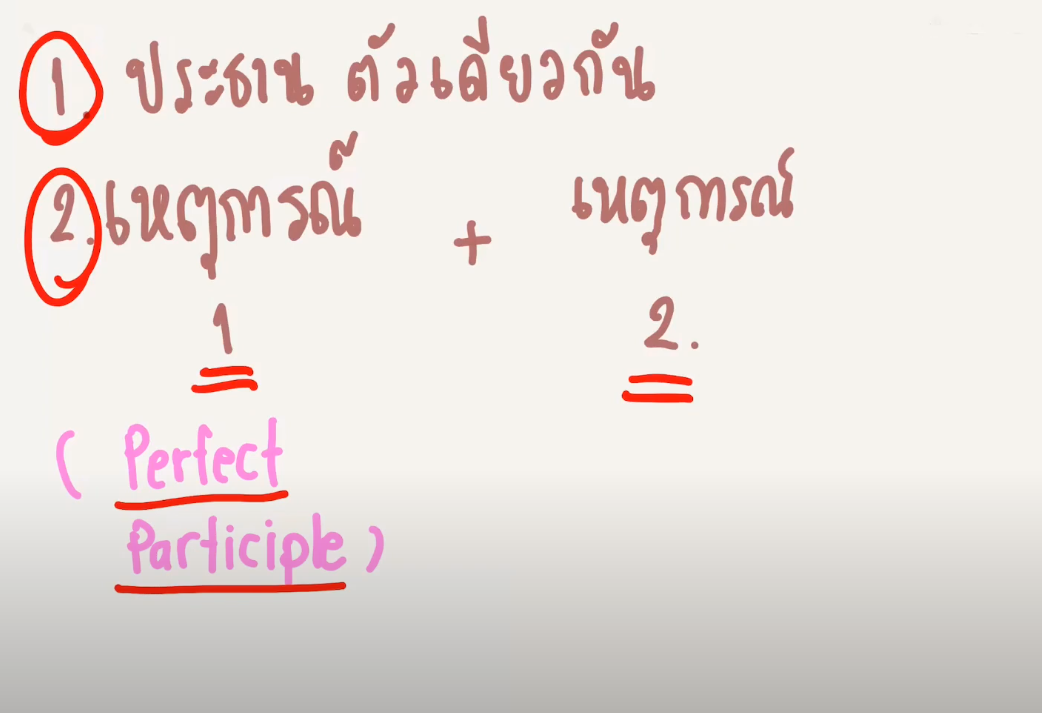 1. ประธาน ตัวเดียวกัน
2. เหตุการณ์ + เหตุการณ์
1 2.
( Perfect
Participle )